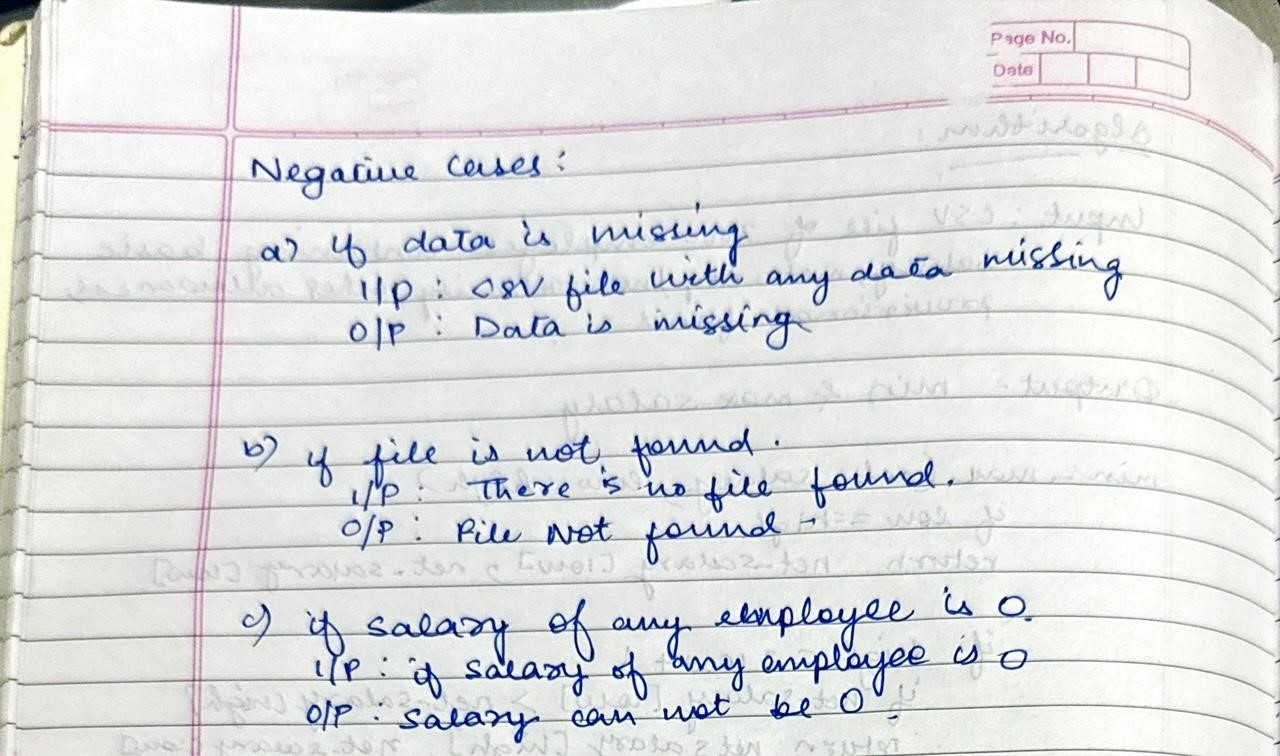 Page No.
Date
Negative Cases:
a) if data is missing
I/P : CSV file with any data missing
O/P : Data is missing
b) if file is not found.
I/P : There is no file found.
O/P : File Not found.
c) if salary of any employee is 0.
I/P : if salary of any employee is 0
O/P : Salary can not be 0.